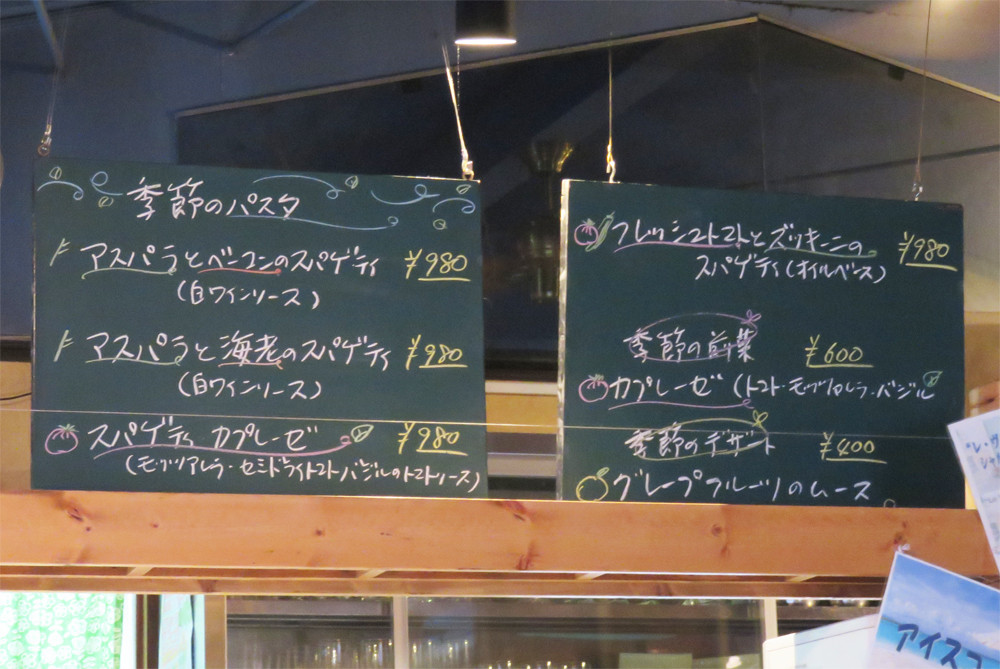 季節のパスタ
アスパラとベーコンのスパゲティ ¥980
(白ワインソース)
アスパラと海老のスパゲティ ¥980
(白ワインソース)
スパゲティ カプレーゼ ¥980
(モッツアレラ・セミドライトマトバジルのトマトソース)
フレッシュトマトとズッキーニの ¥980
スパゲティ(オイルベース)
季節の前菜 ¥600
カプレーゼ (トマト・モッツァレラ・バジル
季節のデザート ¥400
グレープフルーツのムース
アイス